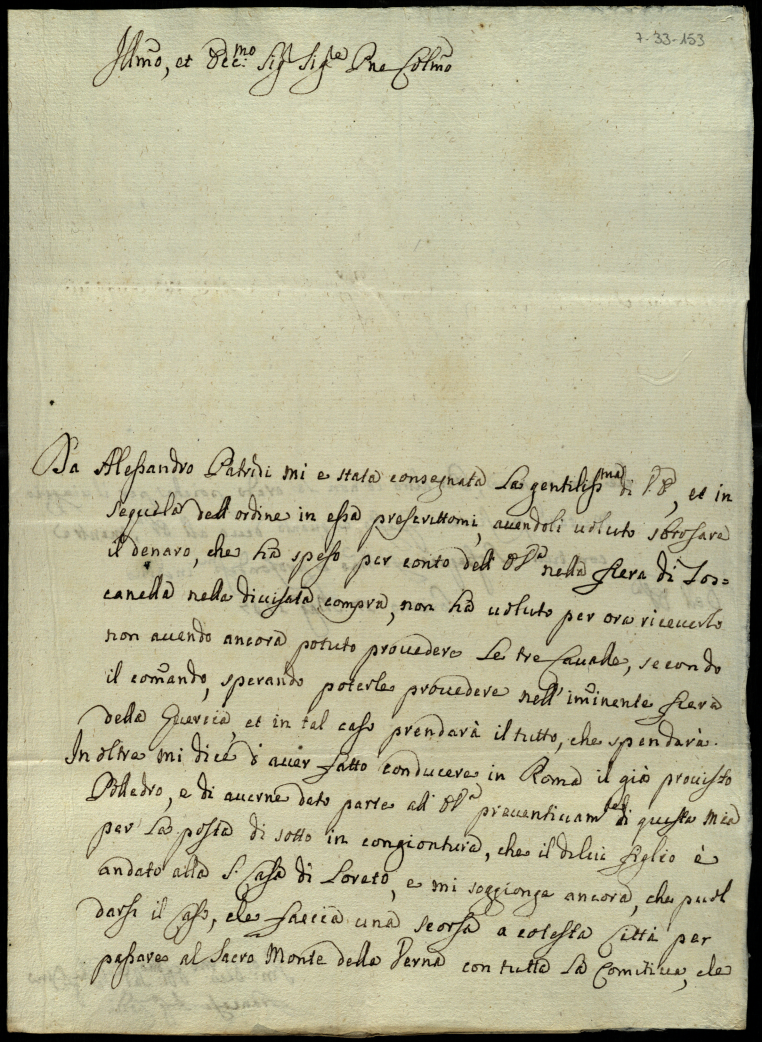 7-33-153
Illmo, et Ecc:mo Sig.r Sig.re Pne Colmo
Da Alessandro Patrizi mi è stata consegnata la gentiliss.ma di V.E., et in
sequela dell'ordine in essa prescrittomi, auendoli uoluto sborsare
il denaro, che hà speso per conto dell'E.V.a nella fiera di Tos=
canella nella diuisata compra, non hà uoluto per ora riceuerlo
non auendo ancora potuto prouedere le tre Caualle, secondo
il comando, sperando poterle prouedere nell'im̃inente fiera
della Quercia, et in tal caso prendarà il tutto, che spendarà.
In oltre mi dice d'auer fatto conducere in Roma il già prouisto
Polledro, e di auerne dato parte all'E.V.a preuentiuam.te di questa mia
per la posta di sotto in congiontura, che il dilui figlio è
andato alla S. Casa di Loreto, e mi soggionge ancora, che puol
darsi il caso, che faccia una scorsa a cotesta Città per
passare al Sacro Monte della Verna con tutta la Comitiua, che